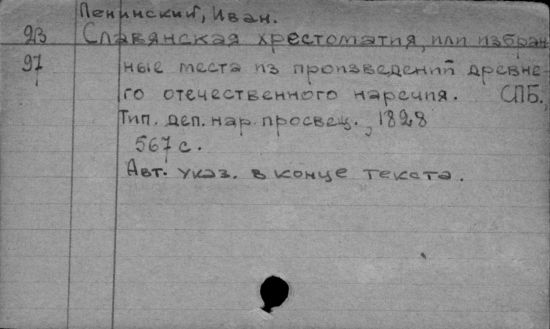 Пенинский, Иван.
23 Славянская хрестоматия, или избран
97 ные места из произведений древне-
го отечественного наречия. СПБ.,
Тип. деп. нар. просвещ., 1828
567 с.
Авт. указ. в конце текста.